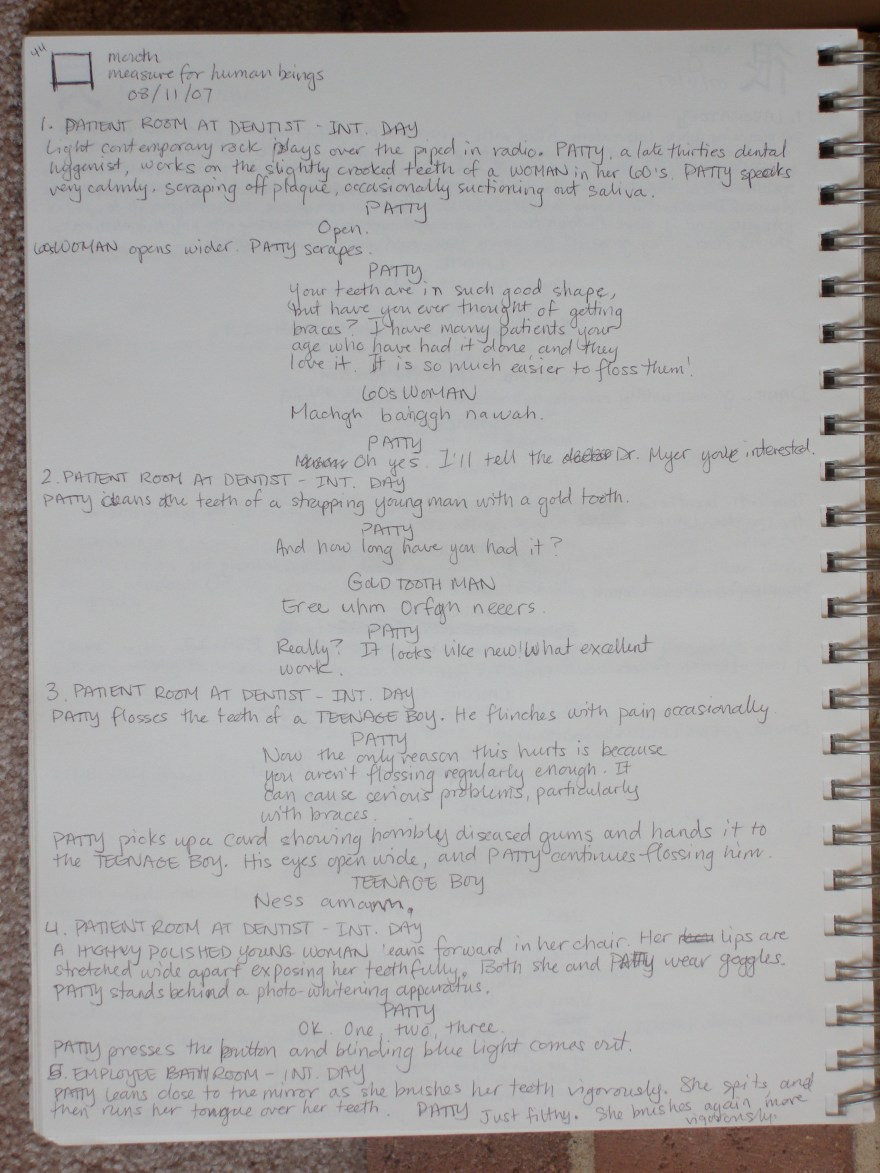 44
mouth
measure for human beings
08/11/07
1. PATIENT ROOM AT DENTIST - INT. DAY
Light contemporary rock plays over the piped in radio. PATTY, a late thirties dental
hygenist, works on the slightly crooked teeth of a WOMAN in her 60's. PATTY speaks
very calmly. scraping off plaque, occasionally suctioning out saliva.
PATTY
Open.
60s WOMAN opens wider. PATTY scrapes.
PATTY
Your teeth are in such good shape,
but have you ever thought of getting
braces? I have many patients your
age who have had it done, and they
love it. It is so much easier to floss them!
60s WOMAN
Machgh banggh nawah.
PATTY
Oh yes. I'll tell the Dr. Myer you're interested.
2. PATIENT ROOM AT DENTIST - INT. DAY
PATTY cleans the teeth of a strapping young man with a gold tooth.
PATTY
And how long have you had it?
GOLD TOOTH MAN
Eree uhm Orfgh neeers.
PATTY
Really? It looks like new! What excellent
work.
3. PATIENT ROOM AT DENTIST - INT. DAY
PATTY flosses the teeth of a TEENAGE BOY. He flinches with pain occasionally
PATTY
Now the only reason this hurts is because
you aren't flossing regularly enough. It
can cause serious problems, particularly
with braces.
PATTY picks up a card showing horribly diseased gums and hands it to
the TEENAGE BOY. His eyes open wide, and PATTY continues flossing him.
TEENAGE BOY
Ness amamn.
4. PATIENT ROOM AT DENTIST - INT. DAY
A HIGHLY POLISHED YOUNG WOMAN leans forward in her chair. Her lips are
stretched wide apart exposing her teeth fully. Both she and PATTY wear goggles.
PATTY stands behind a photo-whitening apparatus.
PATTY
OK. One, two, three.
PATTY presses the button and blinding blue light comes out.
5. EMPLOYEE BATHROOM - INT. DAY
PATTY leans close to the mirror as she brushes her teeth vigorously. She spits and
then runs her tongue over her teeth. PATTY Just filthy. She brushes again more
vigorously.